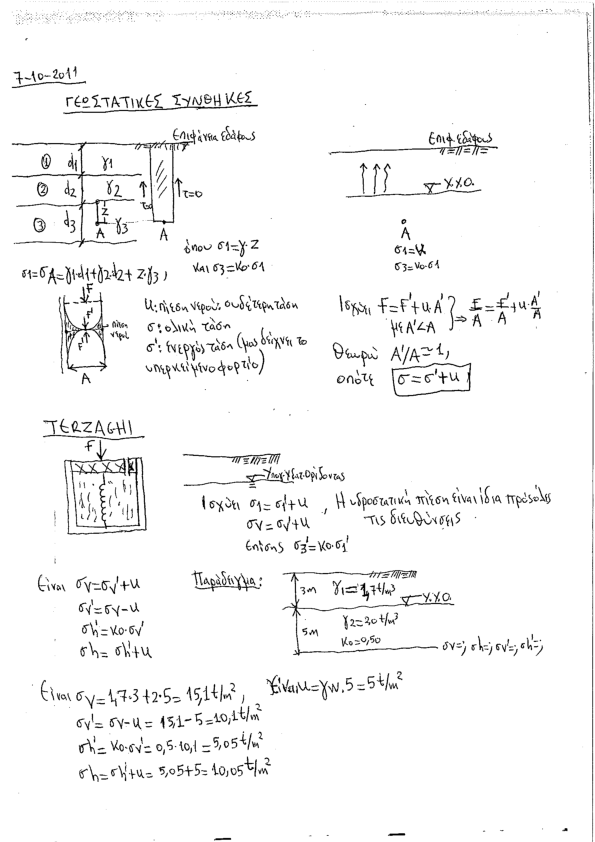 7-10-2011
ΓΕΩΣΤΑΤΙΚΕΣ ΣΥΝΘΗΚΕΣ
Επιφάνεια εδάφους
① d1 γ1
② d2 γ2
③ d3 γ3
z
τ=0
τ=0
A
A
όπου σ1=γ·z
και σ3=κο·σ1
σ1=σA=γ1·d1+γ2·d2+z·γ3,
Επιφ. εδάφους
Υ.Υ.Ο.
A
σ3=κο·σ1
F
F'
F'
πίεση νερού
A
u: πίεση νερού: ουδέτερη τάση
σ: ολική τάση
σ': ενεργός τάση (μας δείχνει το
υπερκείμενο φορτίο)
Ισχύει F=F'+u·A'
με A'<A
⇒ F/A=F'/A+u·A'/A
Θεωρώ A'/A≃1,
οπότε σ=σ'+u
TERZAGHI
F
Υπογ. Υδατ. Ορίζοντας
Ισχύει σ1=σ1'+u , Η υδροστατική πίεση είναι ίδια προς όλες
σv=σv'+u τις διευθύνσεις.
Επίσης σ3'=κο·σ1'
Είναι σv=σv'+u
σv'=σv-u
σh'=κο·σv'
σh=σh'+u
Παράδειγμα:
3m γ1=1,7t/m³
Υ.Υ.Ο.
5m γ2=20t/m³
κο=0,50
σv=; σh=; σv'=; σh'=;
Είναι σv=1,7·3+2·5=15,1t/m², Είναι u=γw·5=5t/m²
σv'=σv-u=15,1-5=10,1t/m²
σh'=κο·σv'=0,5·10,1=5,05t/m²
σh=σh'+u=5,05+5=10,05t/m²